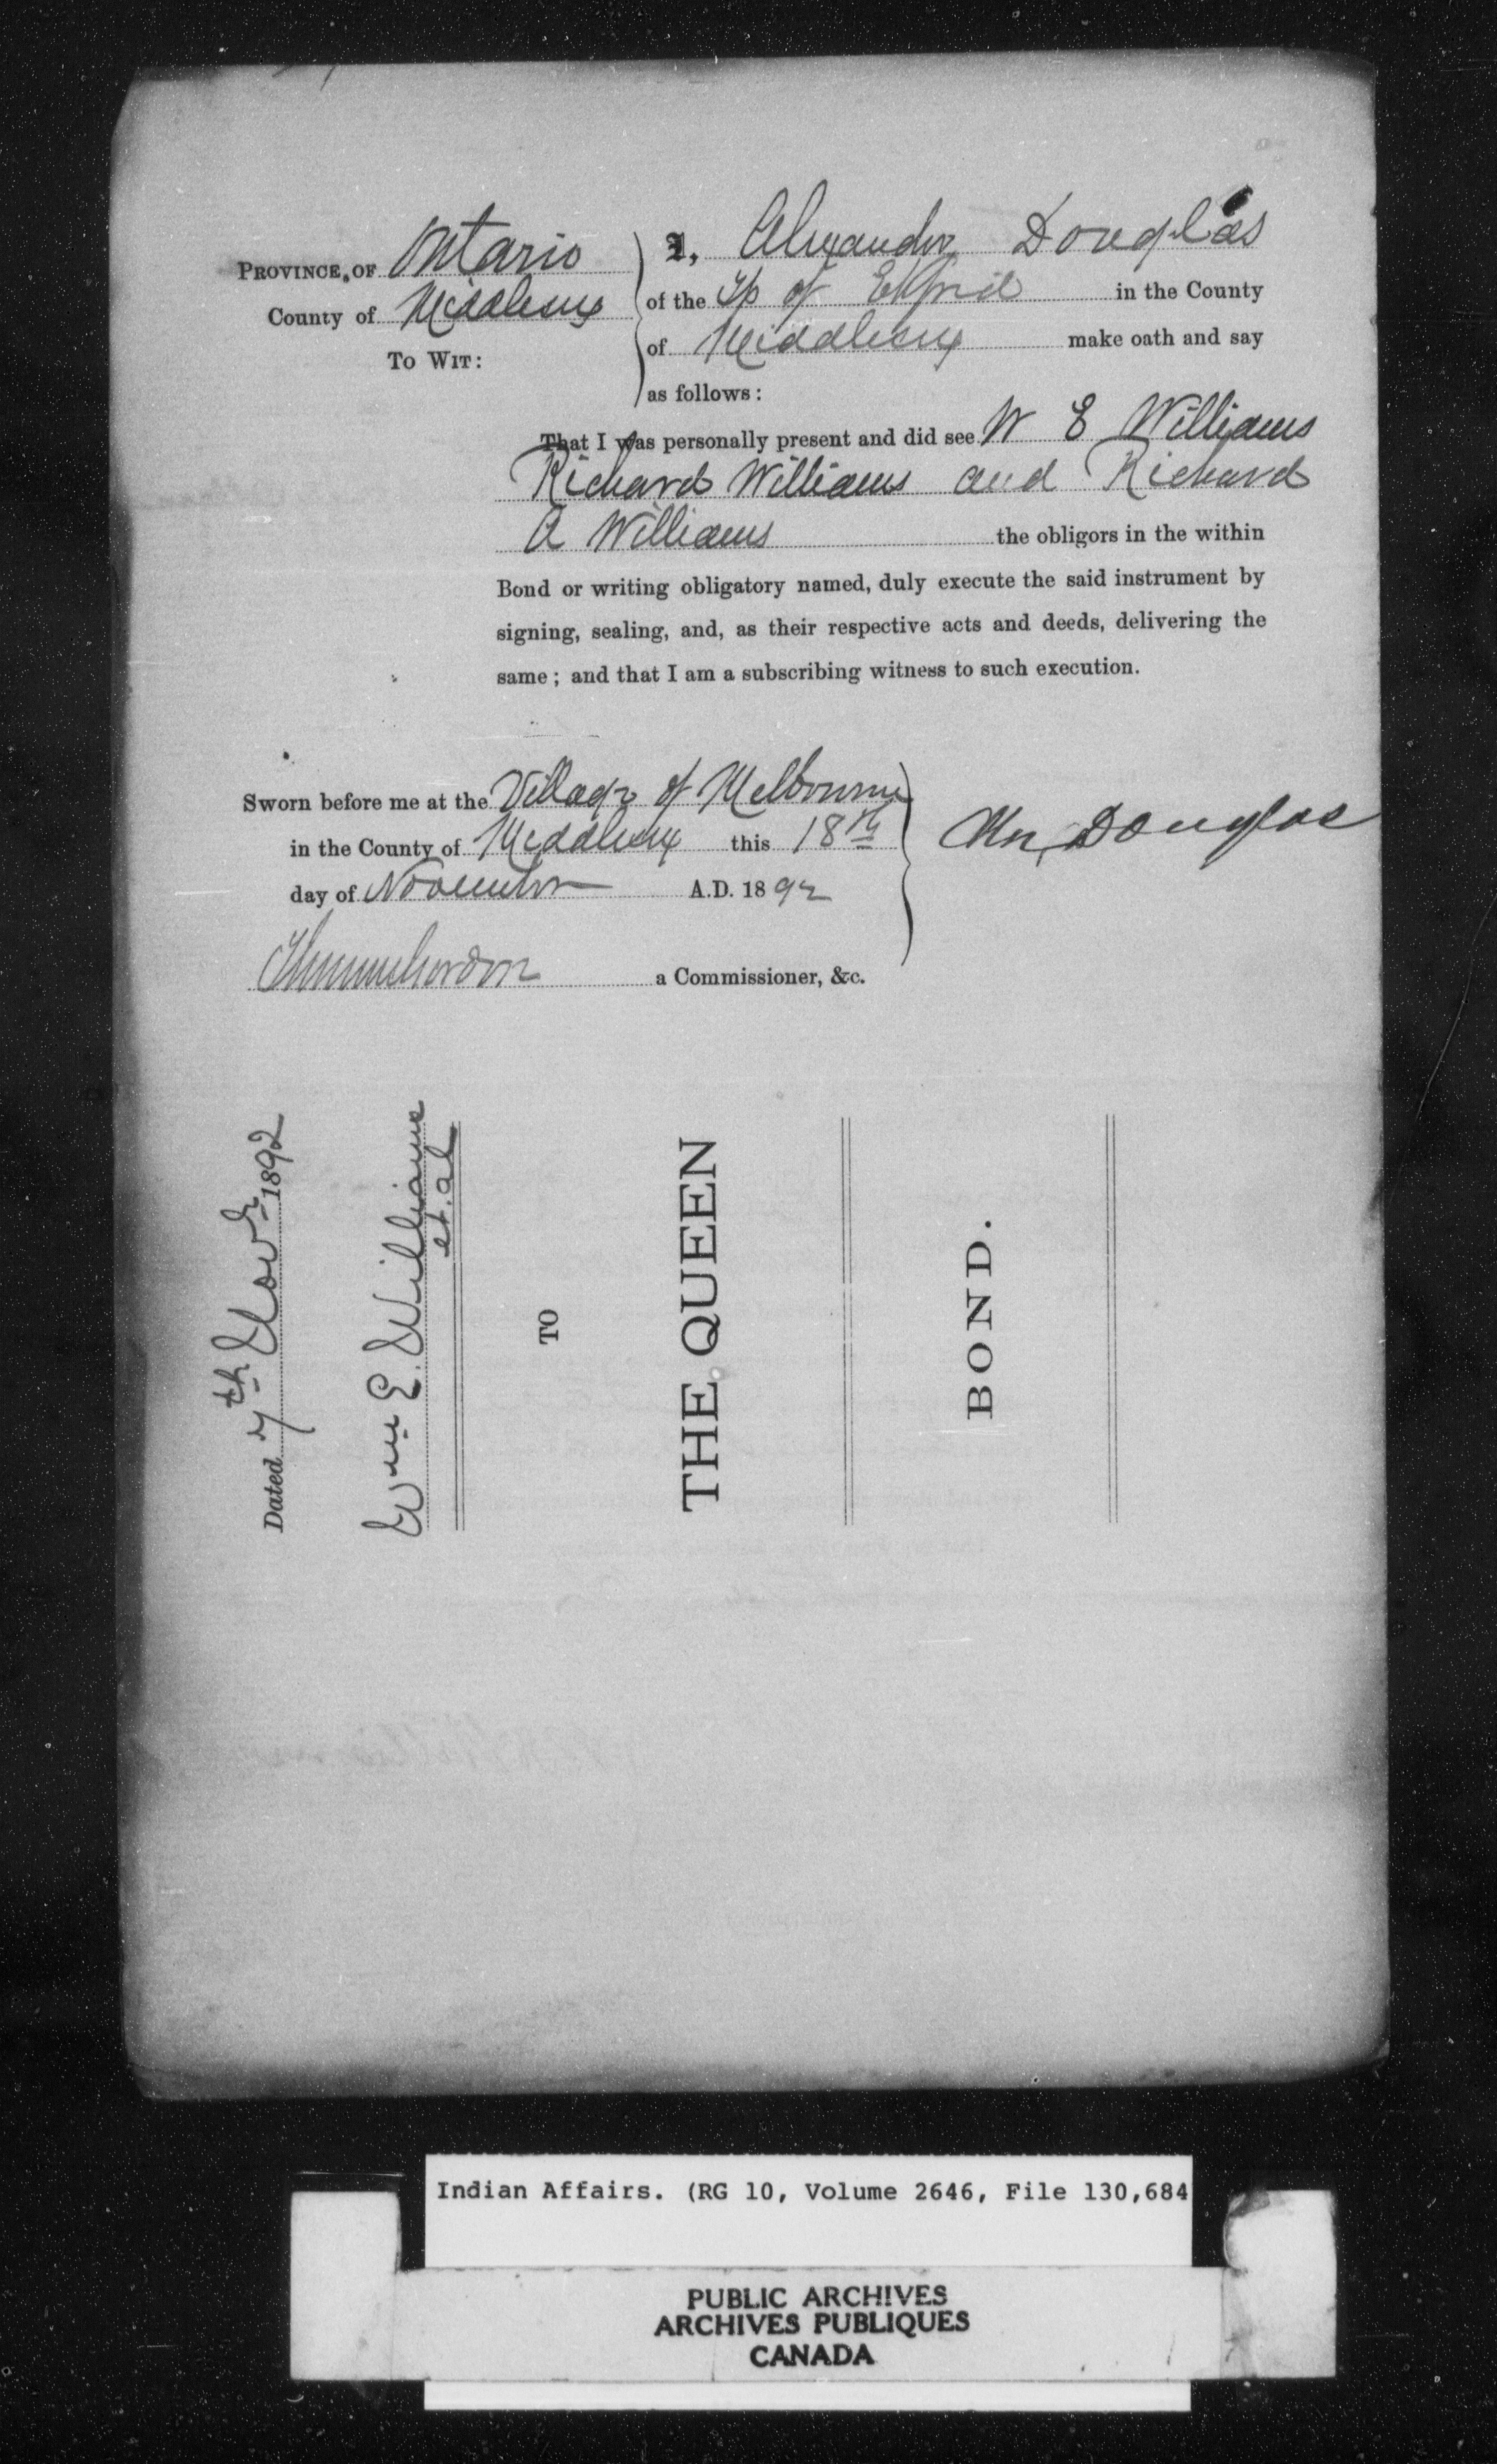 PROVINCE OF Ontario
County of Middlesex
TO WIT:
I, Alexander Douglas
of the Tp of Ekfrid in the County
of Middlesex make oath and say
as follows:
That I was personally present and did see W E Williams
Richard Williams and Richard
A Williams the obligors in the within
Bond or writing obligatory named, duly execute the said instrument by
signing, sealing, and, as their respective acts and deeds, delivering the
same; and that I am a subscribing witness to such execution.
Sworn before me at the Village of Melbourne
in the County of Middlesex this 18th
day of November A.D. 1892
a Commissioner, &c.
Douglas
Dated 7th Novr 1892
Wm E. Williams
et. al
TO
THE QUEEN
BOND.
Indian Affairs. (RG 10, Volume 2646, File 130,684
PUBLIC ARCHIVES
ARCHIVES PUBLIQUES
CANADA